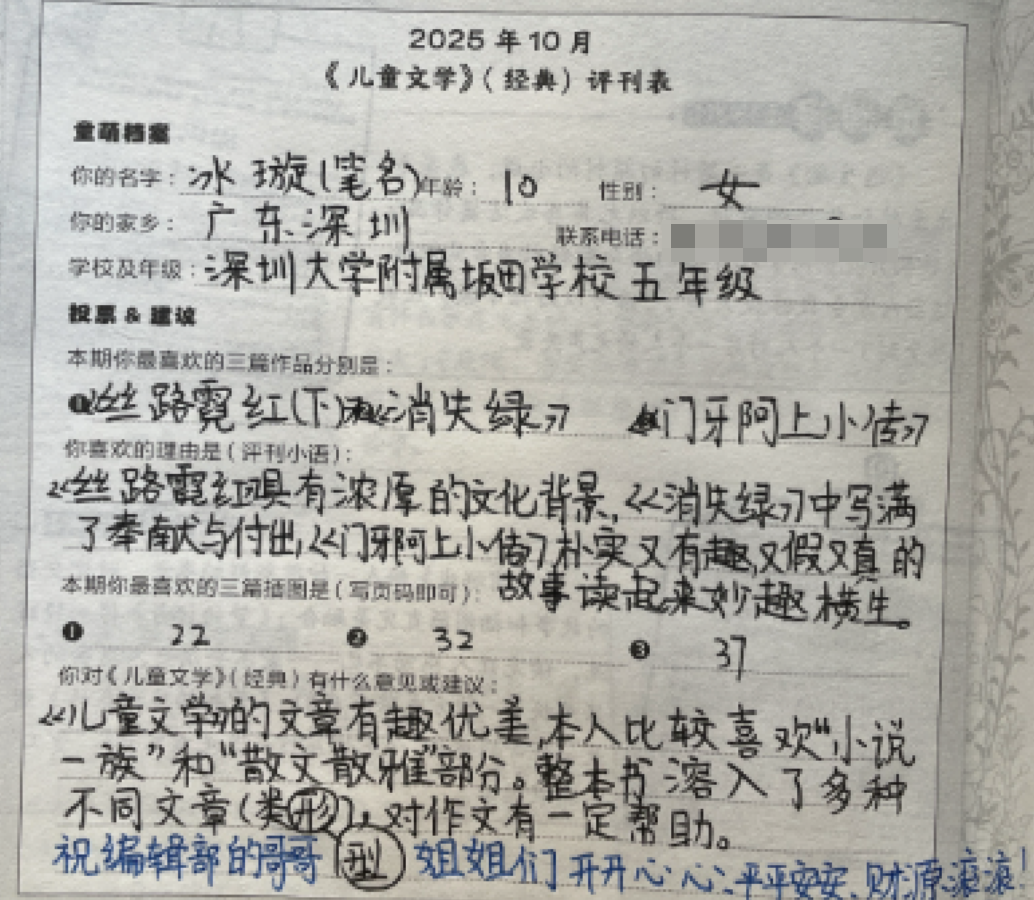 2025年10月
《儿童文学》(经典) 评刊表
童萌档案
你的名字: 冰璇(笔名) 年龄: 10 性别: 女
你的家乡: 广东深圳 联系电话:
学校及年级: 深圳大学附属坂田学校 五年级
投票 & 建议
本期你最喜欢的三篇作品分别是:
❶《丝路霓红(下)》《消失绿》 《门牙阿上小传》
你喜欢的理由是(评刊小语):
《丝路霓红》具有浓厚的文化背景,《消失绿》中写满
了奉献与付出,《门牙阿上小传》朴实又有趣,又假又真的
故事读起来妙趣横生。
本期你最喜欢的三篇插图是(写页码即可):
❶ 22 ❷ 32 ❸ 37
你对《儿童文学》(经典)有什么意见或建议:
《儿童文学》的文章有趣优美,本人比较喜欢“小说
一族”和“散文散雅”部分。整本书溶入了多种
不同文章(类形),对作文有一定帮助。
型
祝编辑部的哥哥姐姐们开开心心、平平安安、财源滚滚!